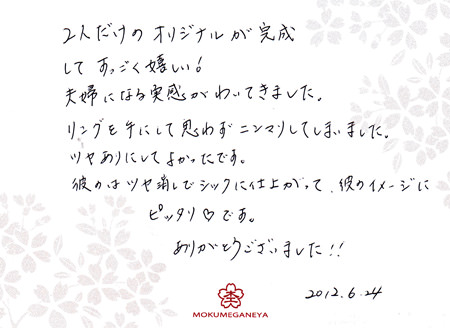 2人だけの オリジナルが完成
して すっごく嬉しい!
夫婦になる実感がわいてきました。
リングを手にして思わずニンマリしてしまいました。
ツヤありにしてよかったです。
彼のはツヤ消しでシックに仕上がって、彼のイメージに
ピッタリ♡です。
ありがとうございました!!
2012.6.24
MOKUMEGANEYA